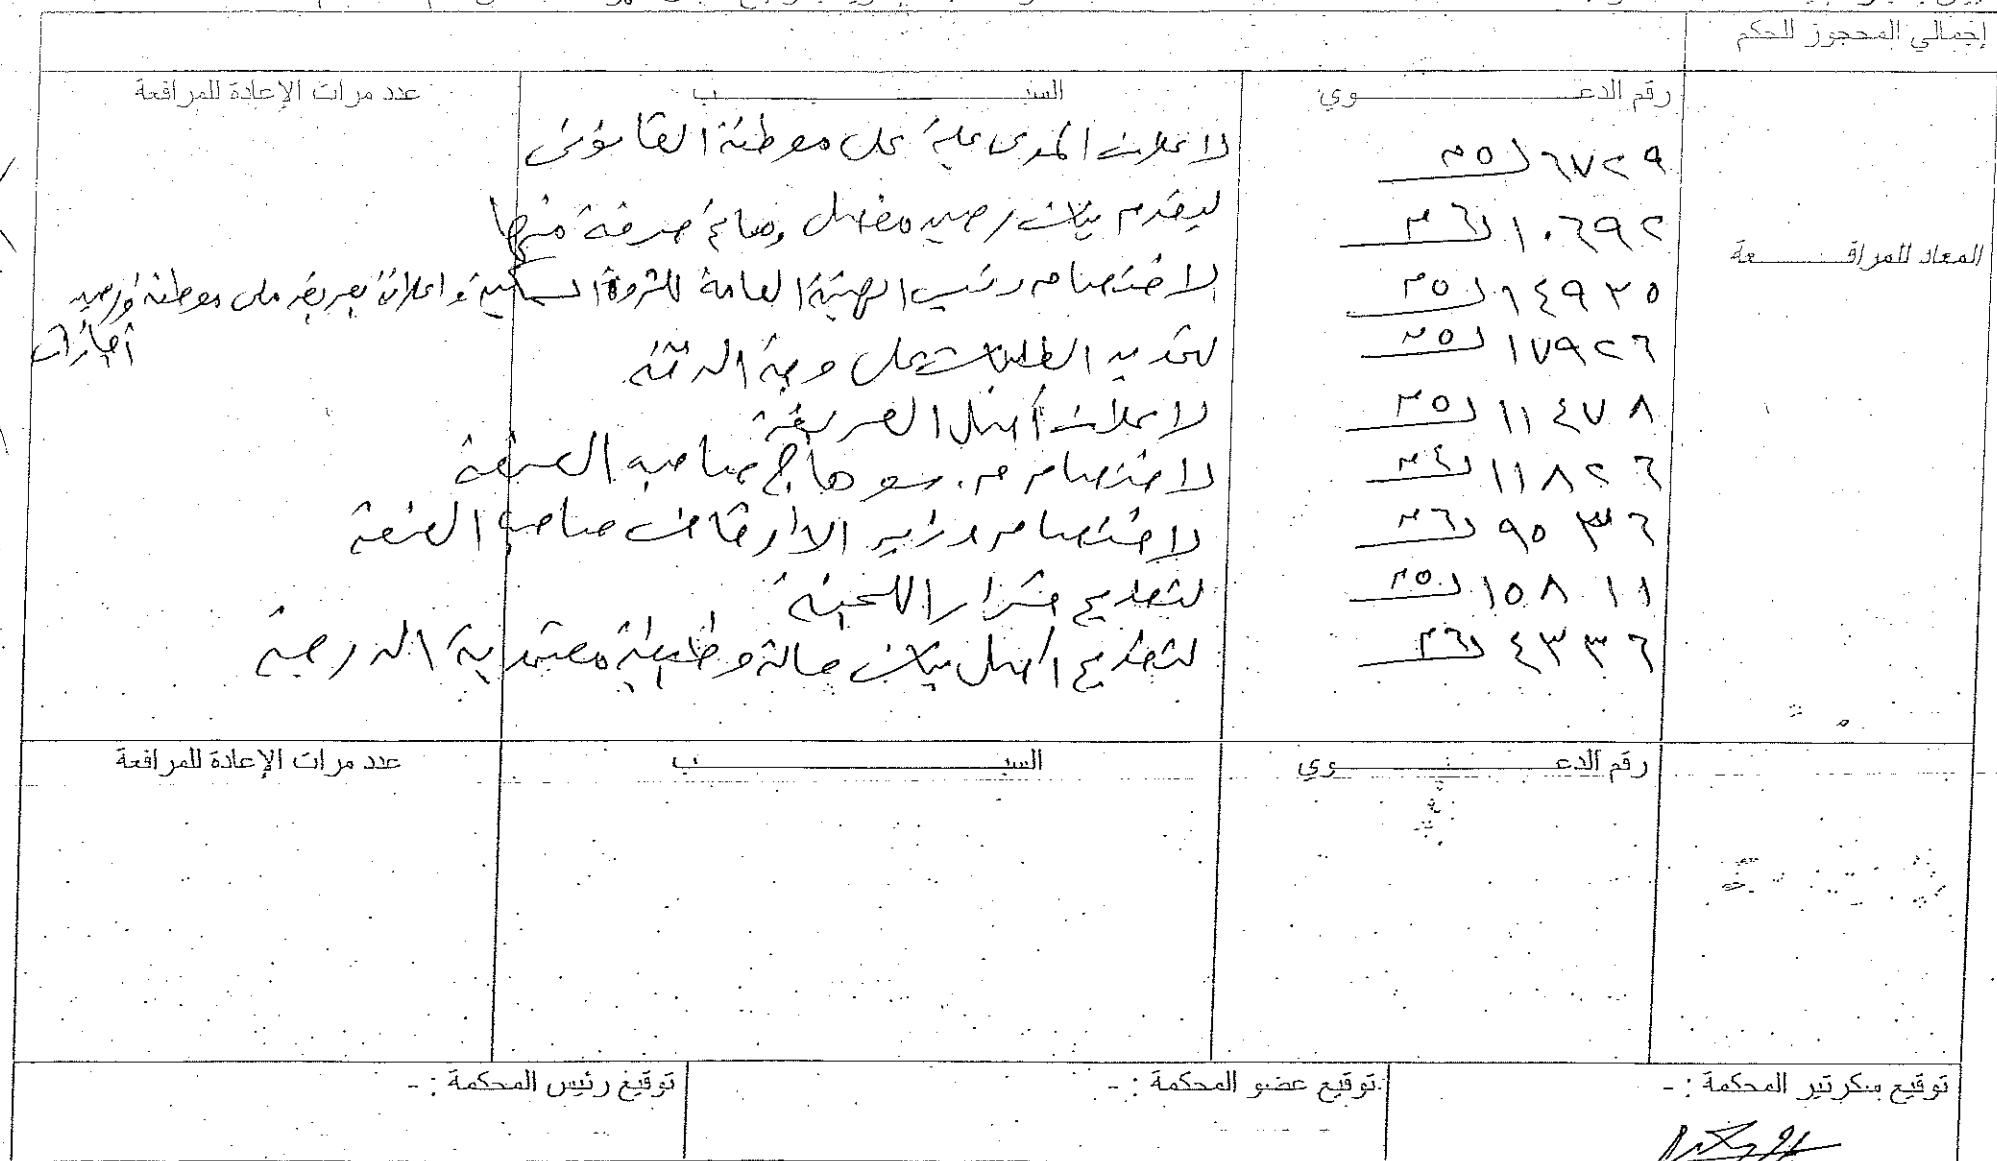 إجمالي المحجوز للحكم
رقم الدعــــــوي السبــــــب عدد مرات الإعادة للمرافعة
المعاد للمرافــــعة
٦٧٢٩ لـ ٣٥ لاعلان المدعى عليه على موطنه القانونى
١٠٦٩٢ لـ ٣٦ ليقدم بيان رصيد مفصل منها
١٤٩٣٥ لـ ٣٥ لاختصام رئيس الهيئة العامة للثروة السمكية واعلانه بعريضة على موطنه ورصيد
أجازات
١٧٩٢٦ لـ ٣٥ لتحديد الطلبات على وجه الدقة
١١٤٧٨ لـ ٣٥ لاعلان أصل العريضة
١١٨٢٦ لـ ٣٤ لاختصام م. سوهاج صاحب الصفة
٩٥٣٦ لـ ٣٦ لاختصام وزير الاوقاف صاحب الصفة
١٥٨١١ لـ ٣٥ لتقديم قرار اللجنة
٤٣٣٦ لـ ٣٦ لتقديم اصل بيان حالة وظيفية معتمد به الدرجة
رقم الدعــــــوي السبــــــب عدد مرات الإعادة للمرافعة
توقيع سكرتير المحكمة : - توقيع عضو المحكمة : - توقيع رئيس المحكمة : -